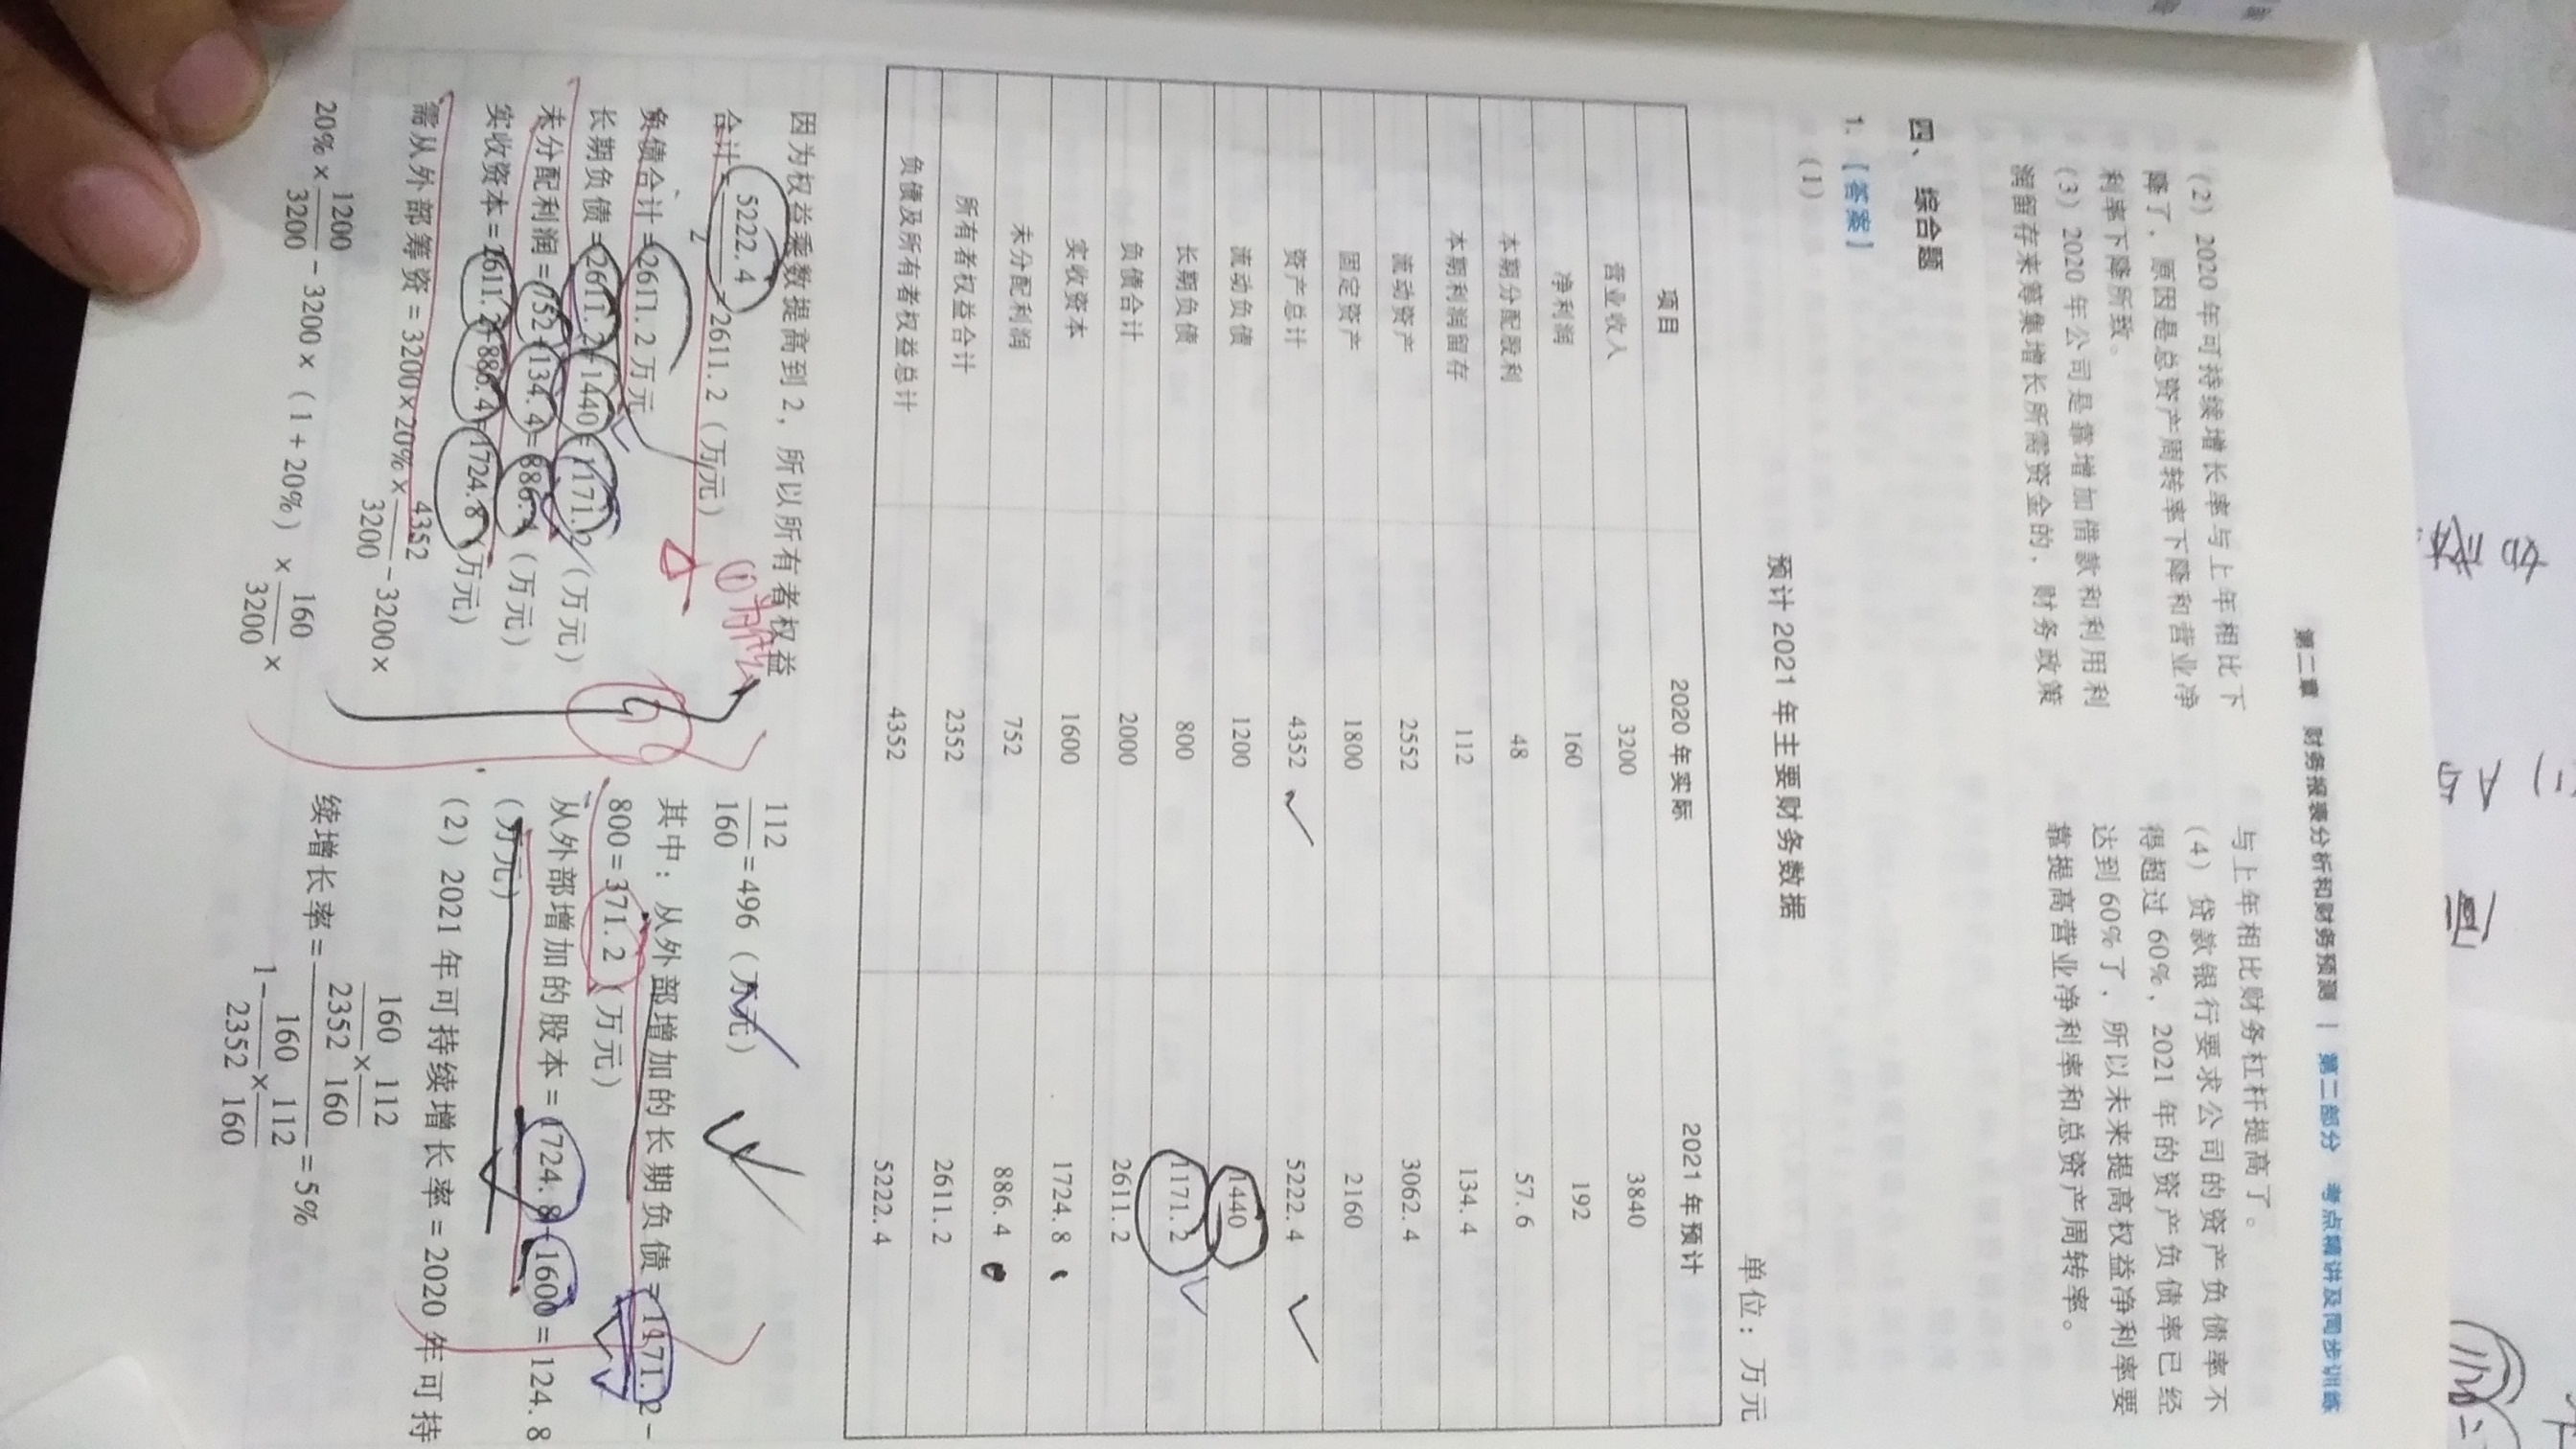 第二章 财务报表分析和财务预测 | 第二部分 考点精讲及同步训练
(2) 2020 年可持续增长率与上年相比下
降了，原因是总资产周转率下降和营业净
利率下降所致。
(3) 2020 年公司是靠增加借款和利用利
润留存来筹集增长所需资金的，财务政策
与上年相比财务杠杆提高了。
(4) 贷款银行要求公司的资产负债率不
得超过 60%，2021 年的资产负债率已经
达到 60% 了，所以未来提高权益净利率要
靠提高营业净利率和总资产周转率。
四、综合题
1.【答案】
(1)
预计 2021 年主要财务数据
单位：万元
项目 2020 年实际 2021 年预计
营业收入 3200 3840
净利润 160 192
本期分配股利 48 57.6
本期利润留存 112 134.4
流动资产 2552 3062.4
固定资产 1800 2160
资产总计 4352 5222.4
流动负债 1200 1440
长期负债 800 1171.2
负债合计 2000 2611.2
实收资本 1600 1724.8
未分配利润 752 886.4
所有者权益合计 2352 2611.2
负债及所有者权益总计 4352 5222.4
因为权益乘数提高到 2，所以所有者权益
合计=5222.4/2=2611.2（万元）
①为什么
负债合计=2611.2 万元
长期负债=2611.2-1440=1171.2（万元）
未分配利润=752+134.4=886.4（万元）
实收资本=2611.2-886.4=1724.8（万元）
需从外部筹资=3200×20%×4352/3200-3200×
20%×1200/3200-3200×（1+20%）×160/3200×
112/160=496（万元）
其中：从外部增加的长期负债=1171.2-
800=371.2（万元）
从外部增加的股本=1724.8-1600=124.8
（万元）
(2) 2021 年可持续增长率=2020 年可持
续增长率=(160/2352×112/160)/(1-160/2352×112/160)=5%